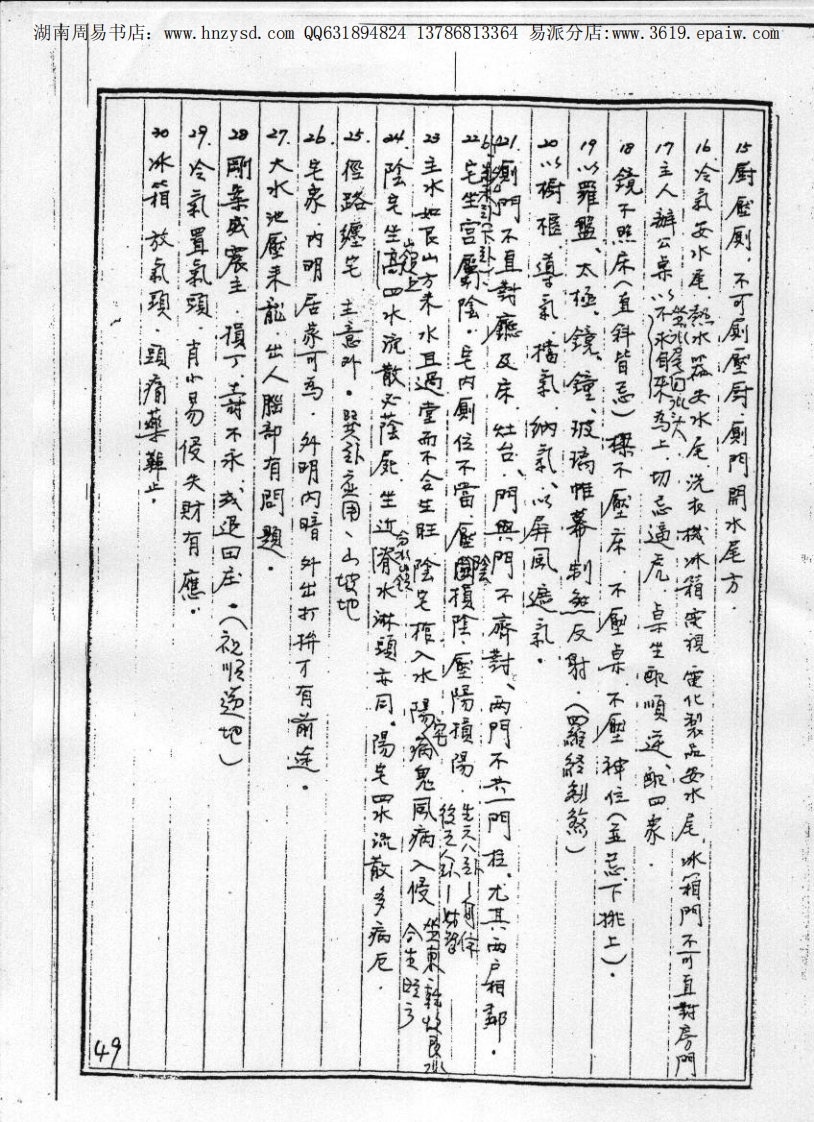 湖南周易书店：www.hnzysd.com QQ631894824 13786813364 易派分店:www.3619.epaiw.com
15 厨壓厠，不可厠壓厨，厠門開水尾方．
16、冷氣安水尾，熱水器安水尾，洗衣機冰箱電視電化製品安水尾，冰箱門不可直對房門
17、主人辦公桌以不永自來為上，切忌逼虎，桌坐配順逆配四象．
坐水尾向水头
18、鏡不照床（直斜皆忌）樑不壓床，不壓桌，不壓神位（並忌下挑上）．
19 以羅盤、太極、鏡、鐘、玻璃帷幕制煞反射．（羅經制煞）
20 以櫥櫃導氣，擋氣，納氣，以屏風遮氣．
21、厠門不直對廳及床，灶台、門與門不齊對、兩門不共一門柱，尤其兩戶相鄰．
22、宅坐宫壓陰．宅内厠位不當，壓陰損陰，壓陽損陽．
23、主水如艮山方来水且過堂而不合生旺，陰宅棺入水，陽宅病鬼風病入侵
合生旺亏
24、陰宅生高四水流散必蔭屍，坐近脊水淋頭亦同．陽宅四水流散多病厄．
25、徑路纏宅 主意外．巽卦应用、山坡地
26、宅象内明居家可為，外明内暗 外出打拚才有前途．
27、大水池壓来龍，出人腦部有問題．
28、剛柔威震主，損丁，壽不永，或退田庄．（視順逆地）
29、冷氣置氣頭 肖小易侵失財有應．
30 冰箱放氣頭．頭痛藥難止．
49